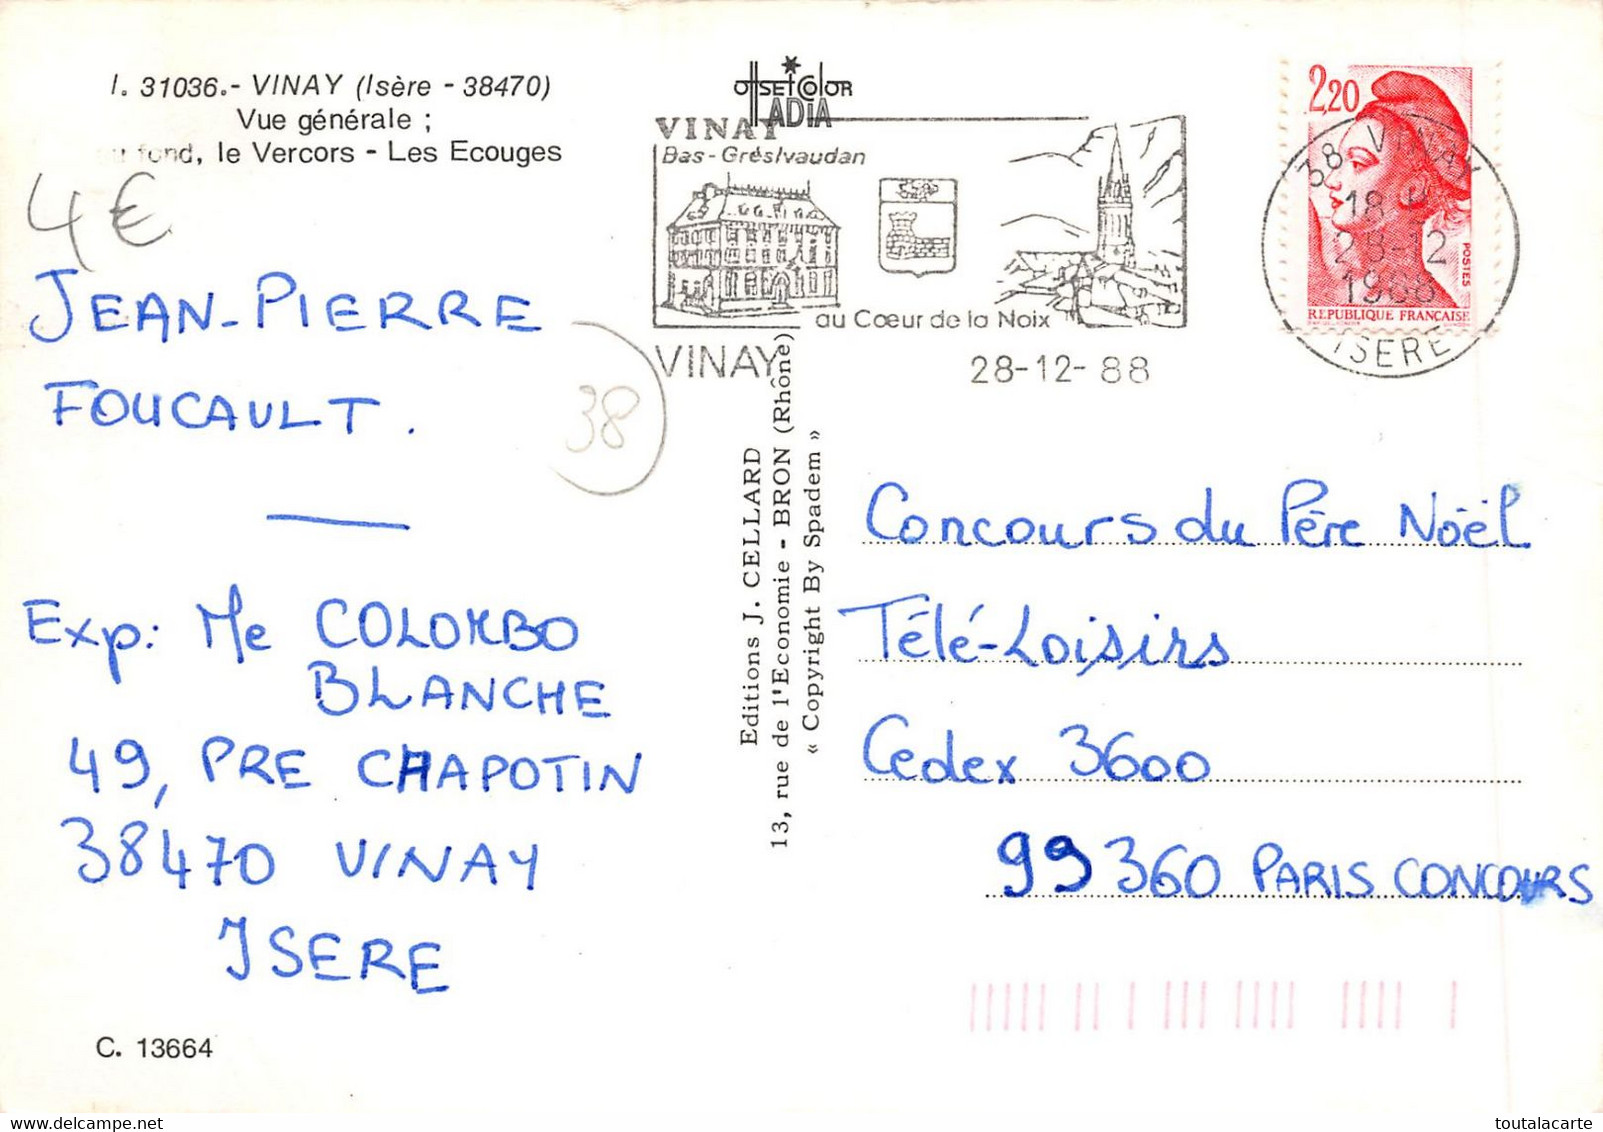 I. 31036.- VINAY (Isère - 38470)
Vue générale ;
fond, le Vercors - Les Ecouges
4€
JEAN-PIERRE
FOUCAULT.
38
Exp: Me COLOMBO
BLANCHE
49, PRE CHAPOTIN
38470 VINAY
ISERE
C. 13664
OffsetColor
ADIA
VINAY
Bas-Grésivaudan
au Cœur de la Noix
VINAY
28-12-88
Editions J. CELLARD
13, rue de l'Economie - BRON (Rhône)
« Copyright By Spadem »
2,20
POSTES
REPUBLIQUE FRANÇAISE
38 VINAY
18 H
28-12
1988
ISERE
Concours du Père Noël
Télé-Loisirs
Cedex 3600
99360 PARIS CONCOURS
toutalacarte